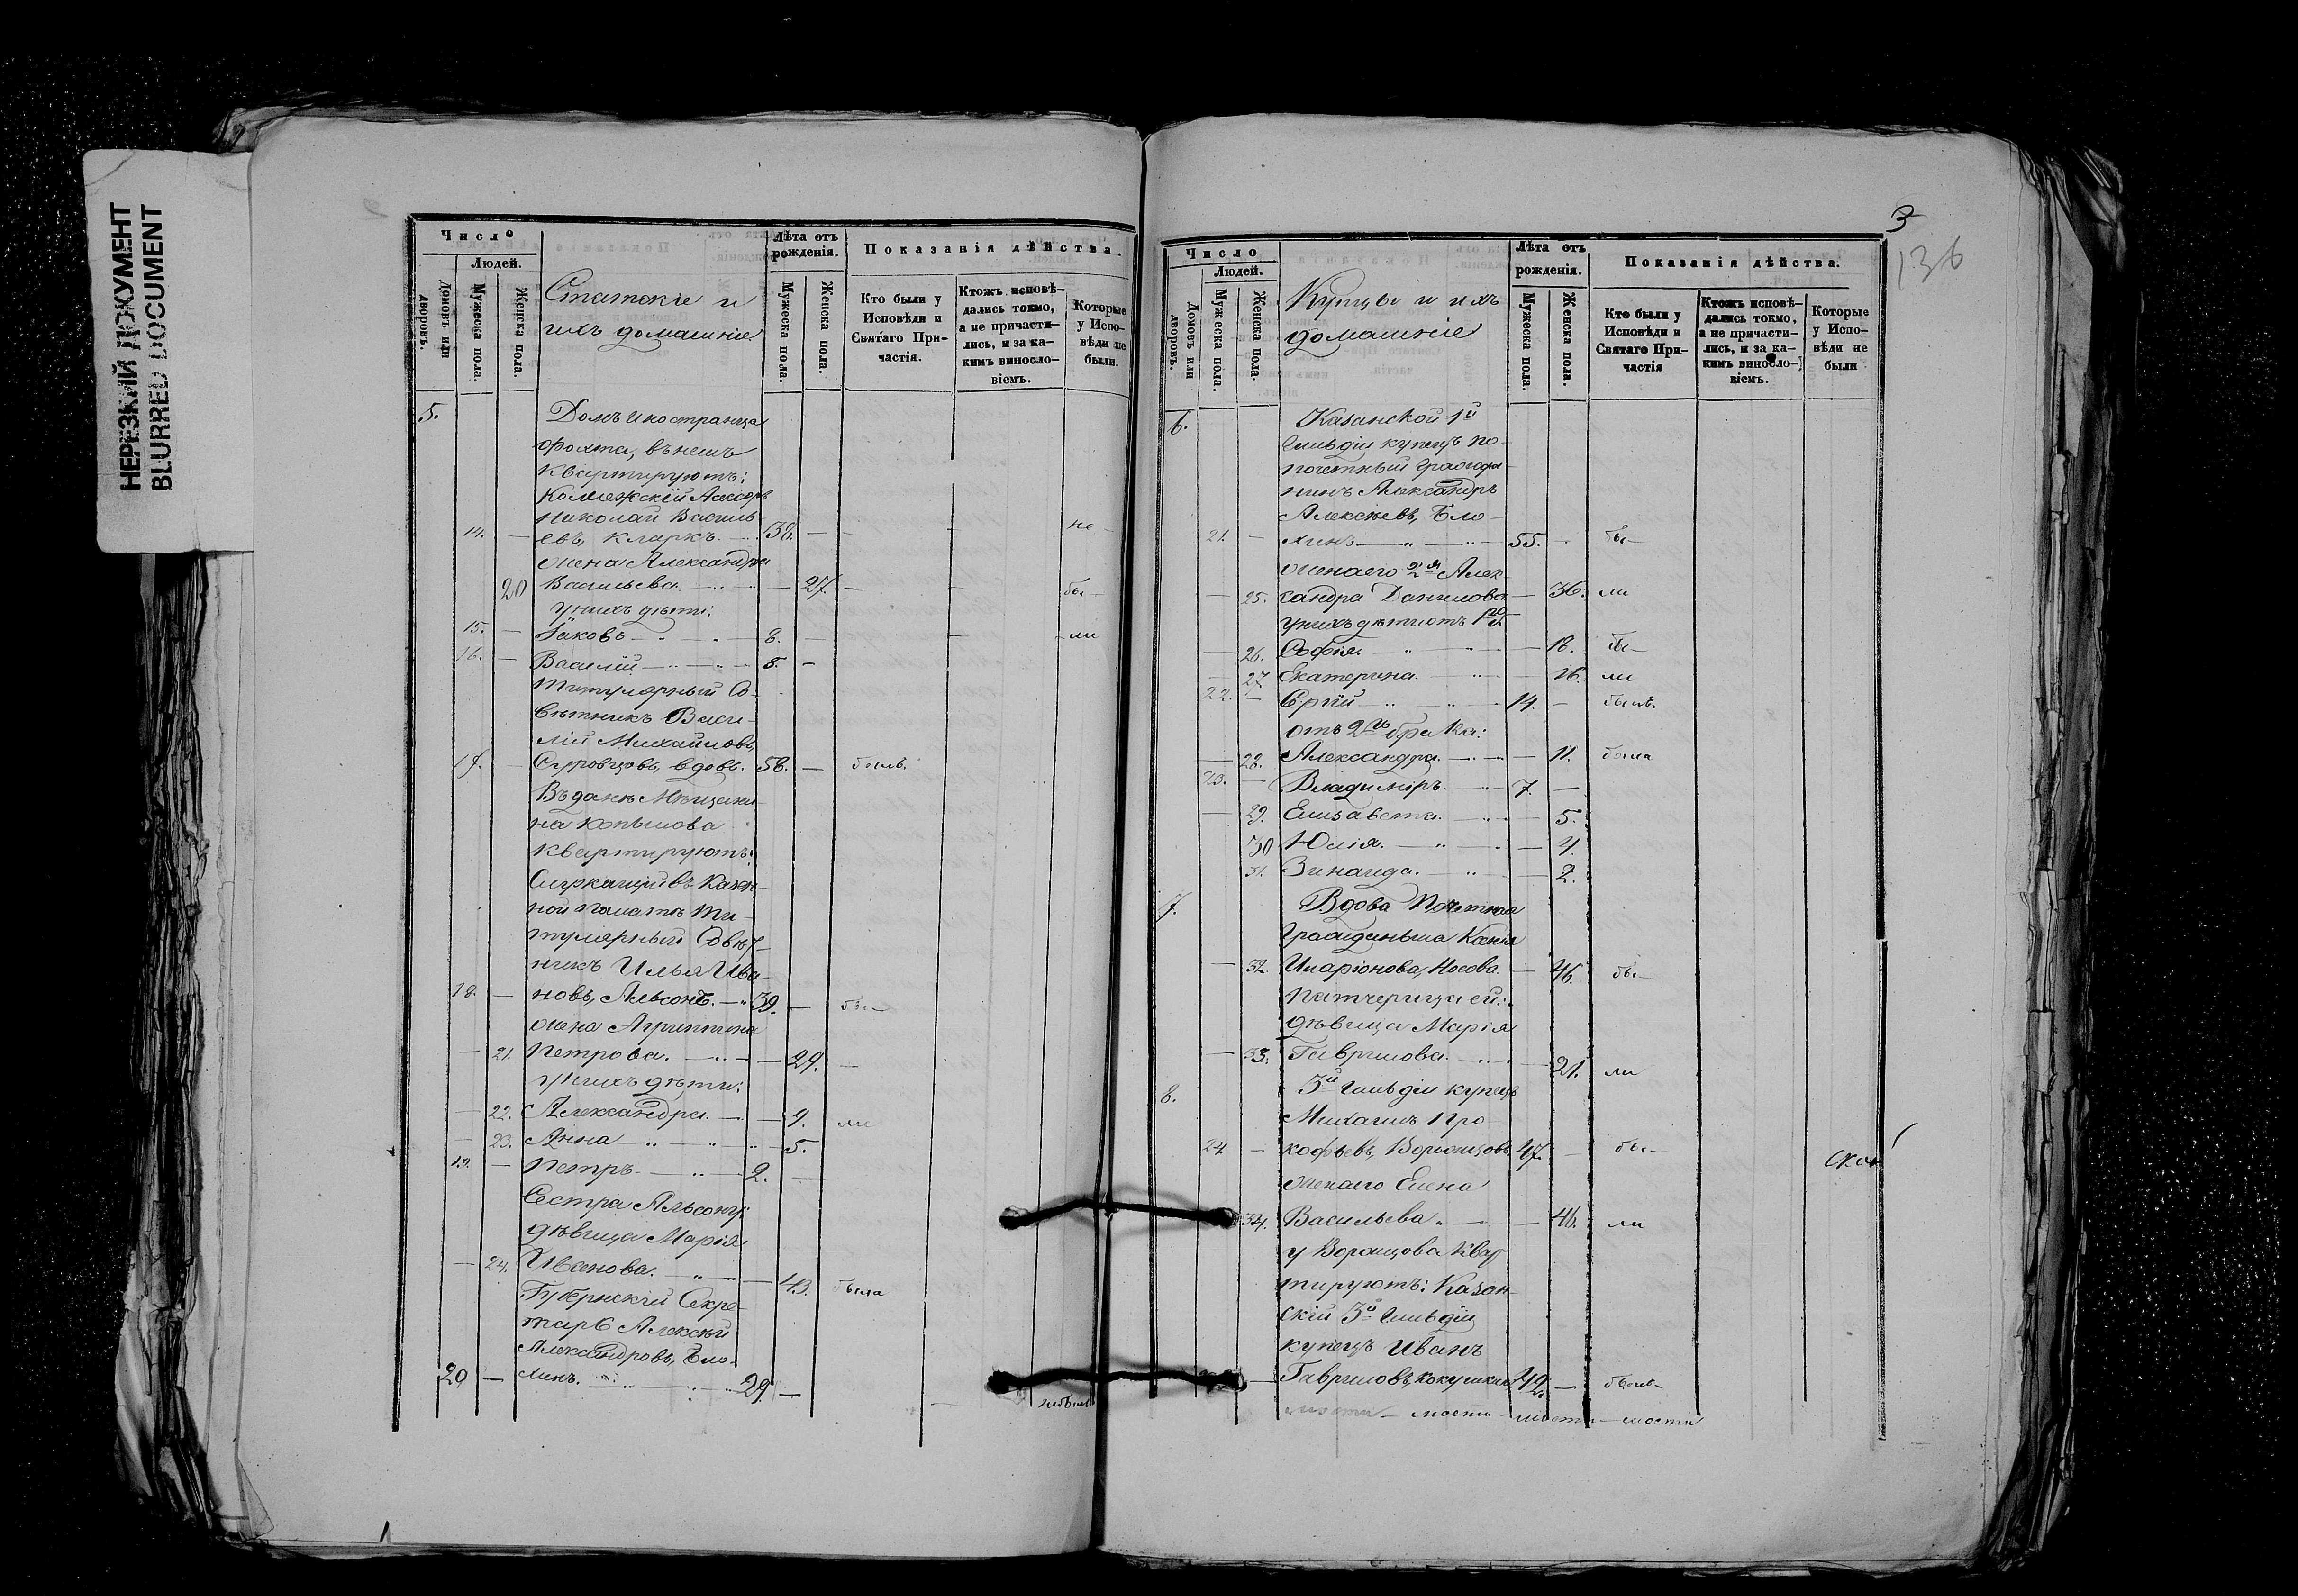 НЕРЕЗКИЙ ДОКУМЕНТ
BLURRED DOCUMENT
Число
Людей.
Домовъ или дворовъ.
Мужеска пола.
Женска пола.
Статскіе и
ихъ домашніе
Лѣта отъ рожденія.
Мужеска пола.
Женска пола.
Показанія дѣйства.
Кто были у Исповѣди и Святаго Причастія.
Ктожъ исповѣдались токмо, а не причастились, и за какимъ винословіемъ.
Которые у Исповѣди не были.
5. Домъ иностранца
Фохта, въ немъ
квартируютъ:
Коллежскій Ассесоръ
Николай Василь-
14. — евъ, Кларкъ. 38. — не-
жена Александра
20 Васильева. — 27. — бы-
у нихъ дѣти:
15. — Іаковъ — 8. — ли
16. — Василій — 5. —
Титулярный Со-
вѣтникъ Васи-
лій Михайловъ,
17. — Суровцовъ, вдовъ. 58. — былъ.
Въ домѣ Мѣщани-
на Копылова
квартируютъ:
Служащій въ Казен-
ной Палатѣ Ти-
тулярный Совѣт-
никъ Илья Ива-
18. — новъ, Альсонъ. — 39. — бы-
жена Агрипина
— 21. Петрова. — 29. —
у нихъ дѣти:
— 22. Александра. — 9. ли
— 23. Анна — 5.
19. — Петръ. — 2. —
Сестра Альсону:
дѣвица Марія
— 24. Иванова. — 43. была
Губернскій Секре-
тарь Алексѣй
Александровъ, Бло-
20 — хинъ. — 29. — небылъ
3
136
Число
Людей.
Домовъ или дворовъ.
Мужеска пола.
Женска пола.
Купцы и ихъ
домашніе
Лѣта отъ рожденія.
Мужеска пола.
Женска пола.
Показанія дѣйства.
Кто были у Исповѣди и Святаго Причастія
Ктожъ исповѣдались токмо, а не причастились, и за какимъ винословіемъ.
Которые у Исповѣди не были
6. Казанской 1й
Гильдіи купецъ по-
почетный Гражда-
нинъ Александръ
Алексѣевъ, Бло-
21. — хинъ — 55. — бы-
жена его 2я Алек-
— 25. сандра Данилова — 36. ли
у нихъ дѣти отъ 1го б.
— 26. Софія. — 18. бы-
— 27. Екатерина. — 16. ли
22. — Ергій — 14. — былъ.
отъ 2го брака:
— 28. Александра. — 11. была
23. — Владиміръ — 7. —
— 29. Елисавета. — 5.
30 Юлія. — 4.
31. Зинаида. — 2.
7. Вдова Почетная
Гражданка Ксенія
— 32. Иларіонова, Носова. — 46. бы-
Патчерица ей:
дѣвица Марія
— 33. Гаврилова. — 21. ли
8. 3й Гильдіи купецъ
Михаилъ Про-
24 — кофьевъ, Воронцовъ. 47. — бы-
жена его Елена
34. Васильева. — 46. ли
у Воронцова квар-
тируютъ: Казан-
скій 3й Гильдіи
купецъ Иванъ
— Гавриловъ, Кокушкинъ 42. — былъ-
мости — мости — мости — мости